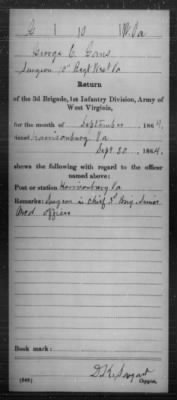 G 10 W. Va
George E. Gans
Surgeon 10" Regt West Va
Return
of the 3d Brigade, 1st Infantry Division, Army of
West Virginia,
for the month of September, 1864,
dated Harrisonburg Va
Sept 30, 1864,
shows the following with regard to the officer
named above:
Post or station Harrisonburg Va
Remarks: Surgeon in chief 3d Brig Senior
Med officer
Book mark:
(646)
Copyist.